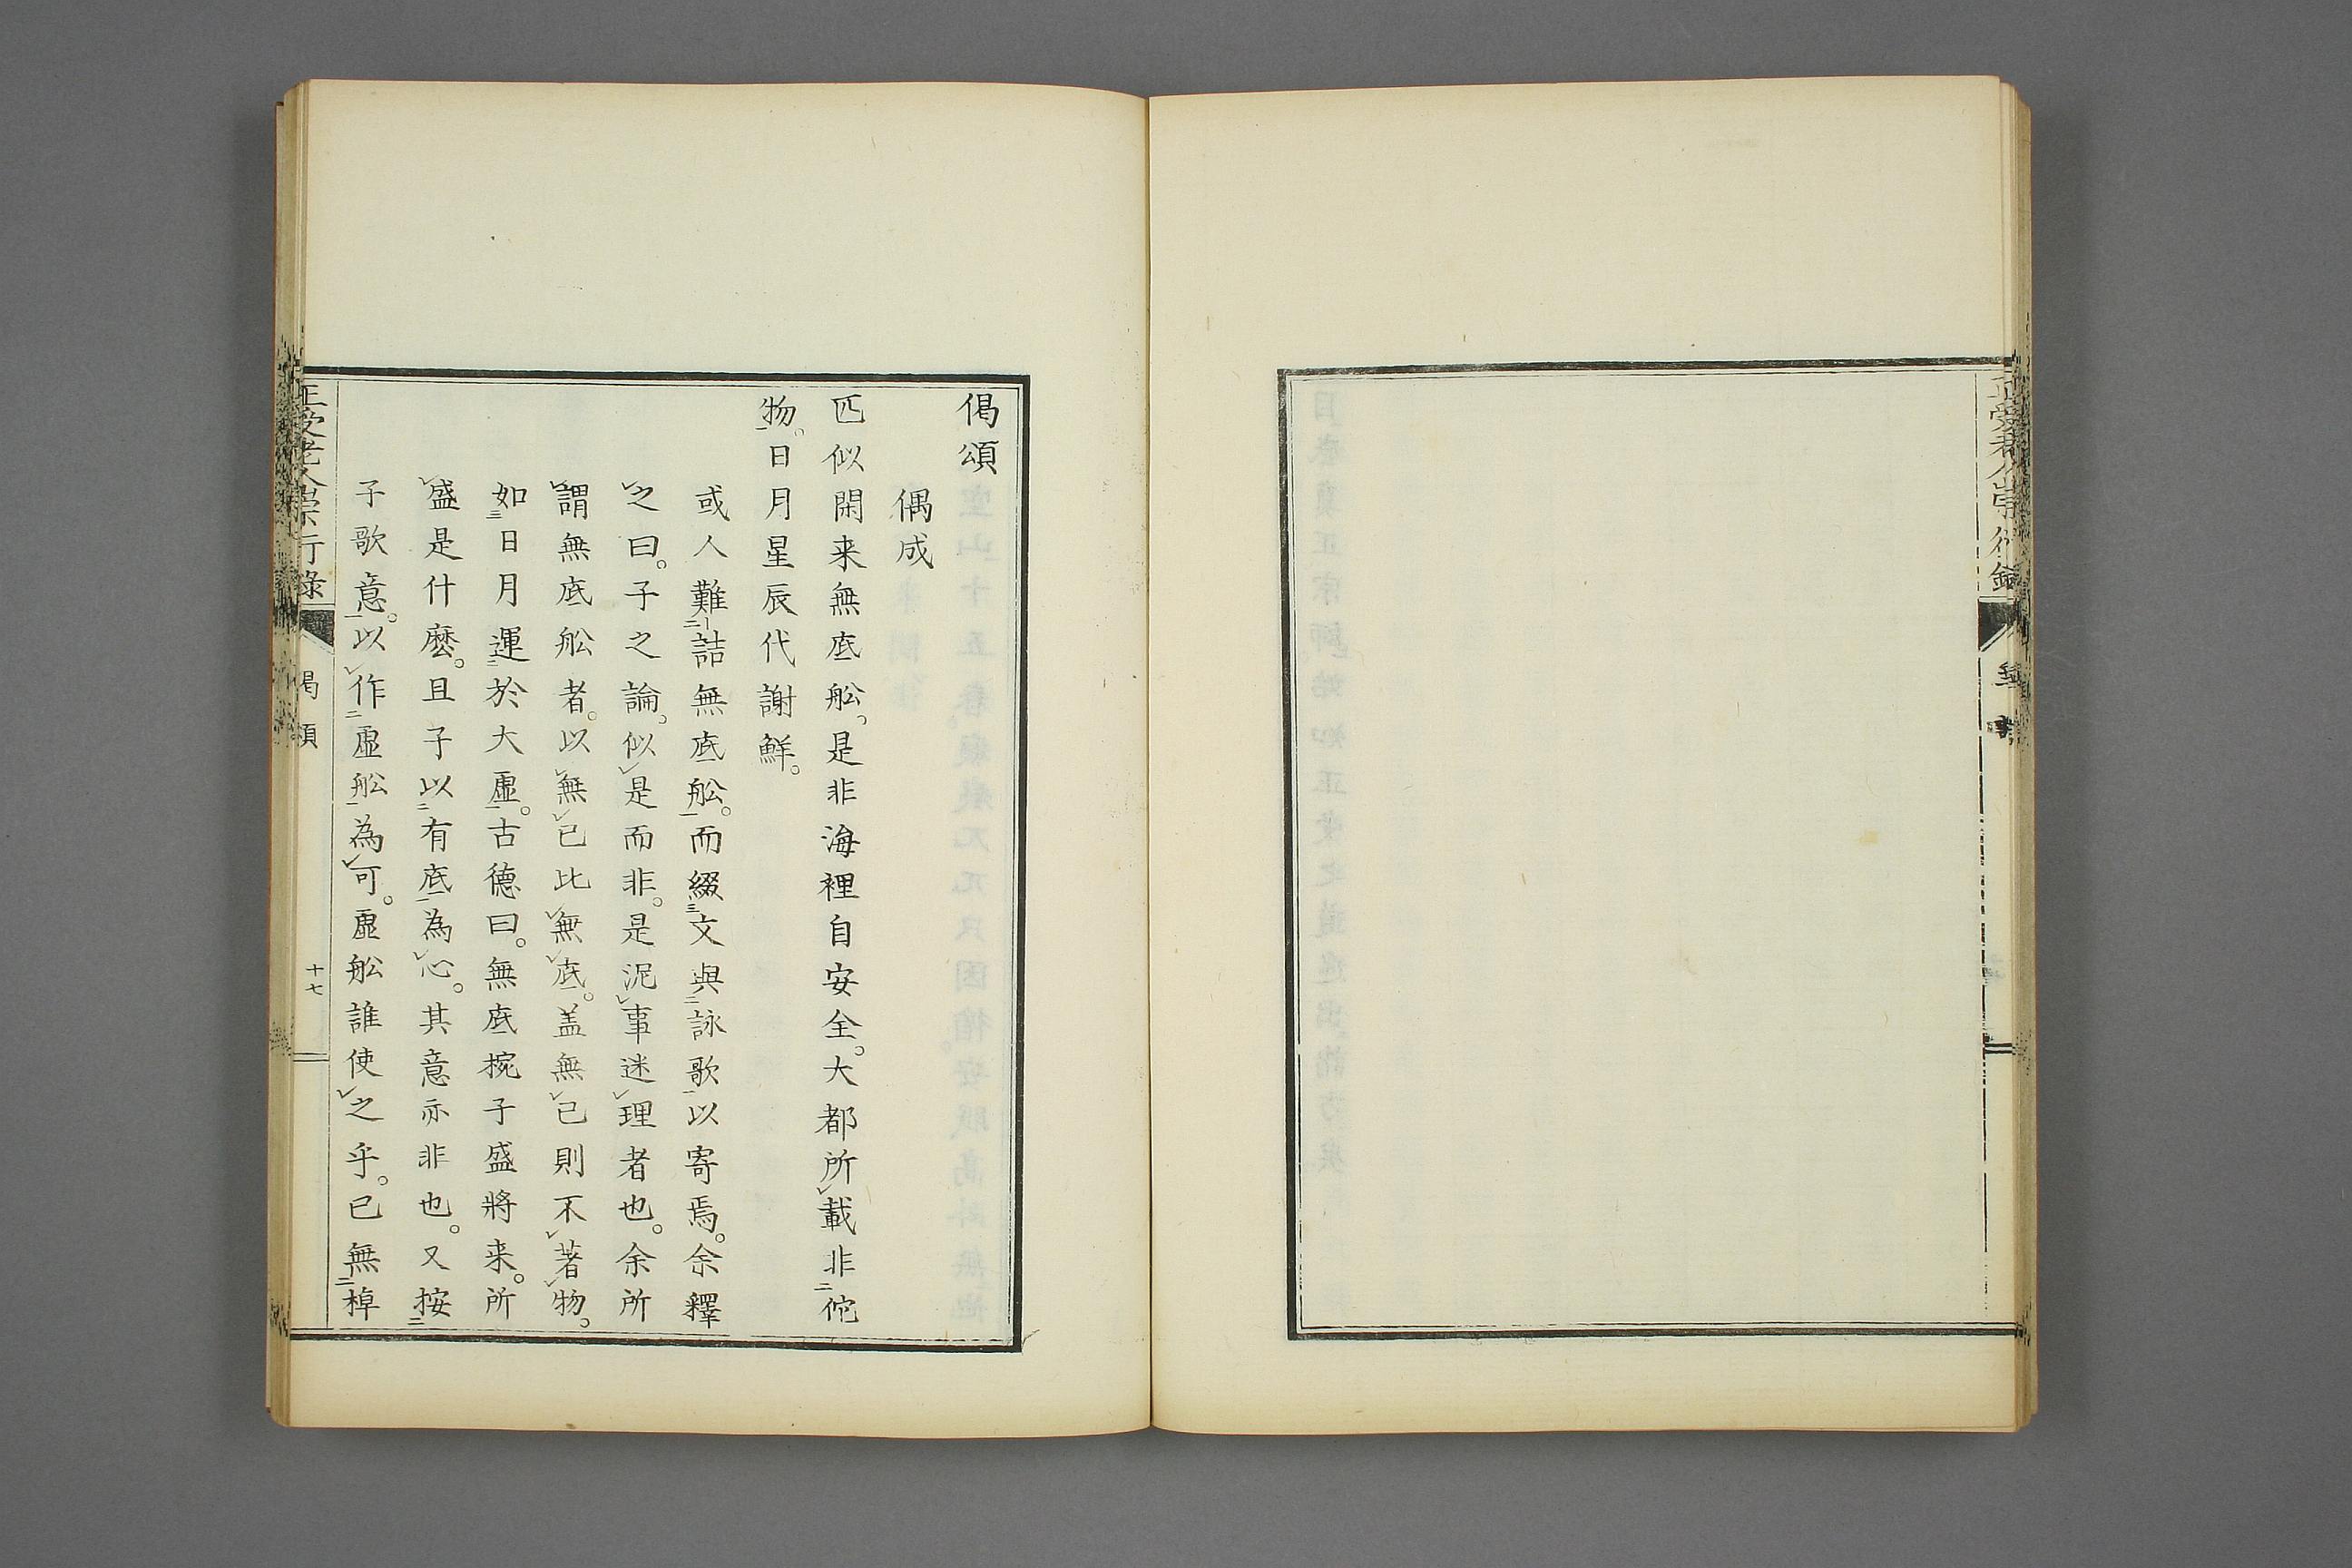 偈頌
偶成
匹似閑来無底舩。是非海裡自安全。大都所載非佗
物。日月星辰代謝鮮。
或人難詰無底舩。而綴文與詠歌以寄焉。余釋
之曰。子之論。似是而非。是泥事迷理者也。余所
謂無底舩者。以無已比無底。盖無已則不著物。
如日月運於大虛。古德曰。無底椀子盛將来。所
盛是什麽。且子以有底為心。其意亦非也。又按
子歌意。以作虛舩為可。虛舩誰使之乎。已無棹
正受老人崇行錄
偈頌
十七